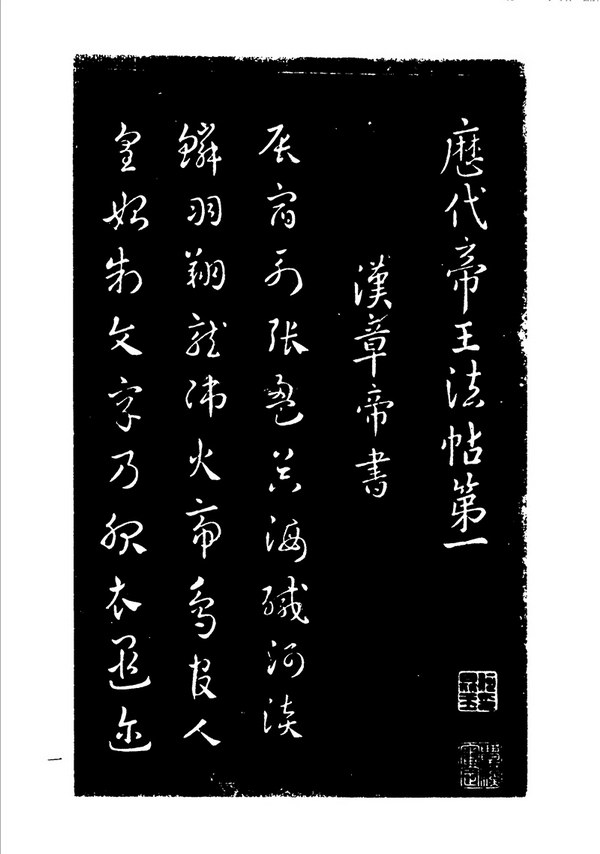 歷代帝王法帖第一
漢章帝書
辰宿列張海鹹河淡
鱗羽翔龍師火帝鳥官人
皇始制文字乃服衣遐邇
一